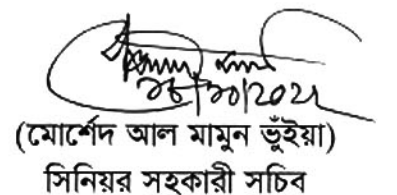 (মোর্শেদ আল মামুন ভূঁইয়া)
সিনিয়র সহকারী সচিব